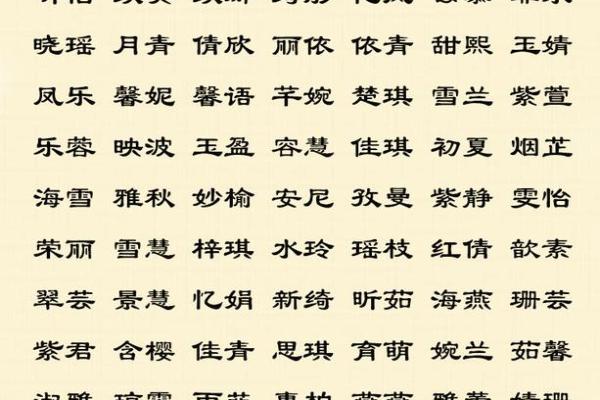 晓瑶 月青 倩欣 丽依 依青 甜熙 玉婧
凤乐 馨妮 馨语 芊婉 楚琪 雪兰 紫萱
乐蓉 映波 玉盈 容慧 佳琪 初夏 烟芷
海雪 雅秋 妙榆 安尼 孜曼 紫静 雯怡
荣丽 雪慧 梓琪 水玲 瑶枝 红倩 歆素
翠芸 景慧 忆娟 新绮 昕茹 海燕 珊芸
紫君 含樱 佳青 思琪 育萌 婉兰 茹馨